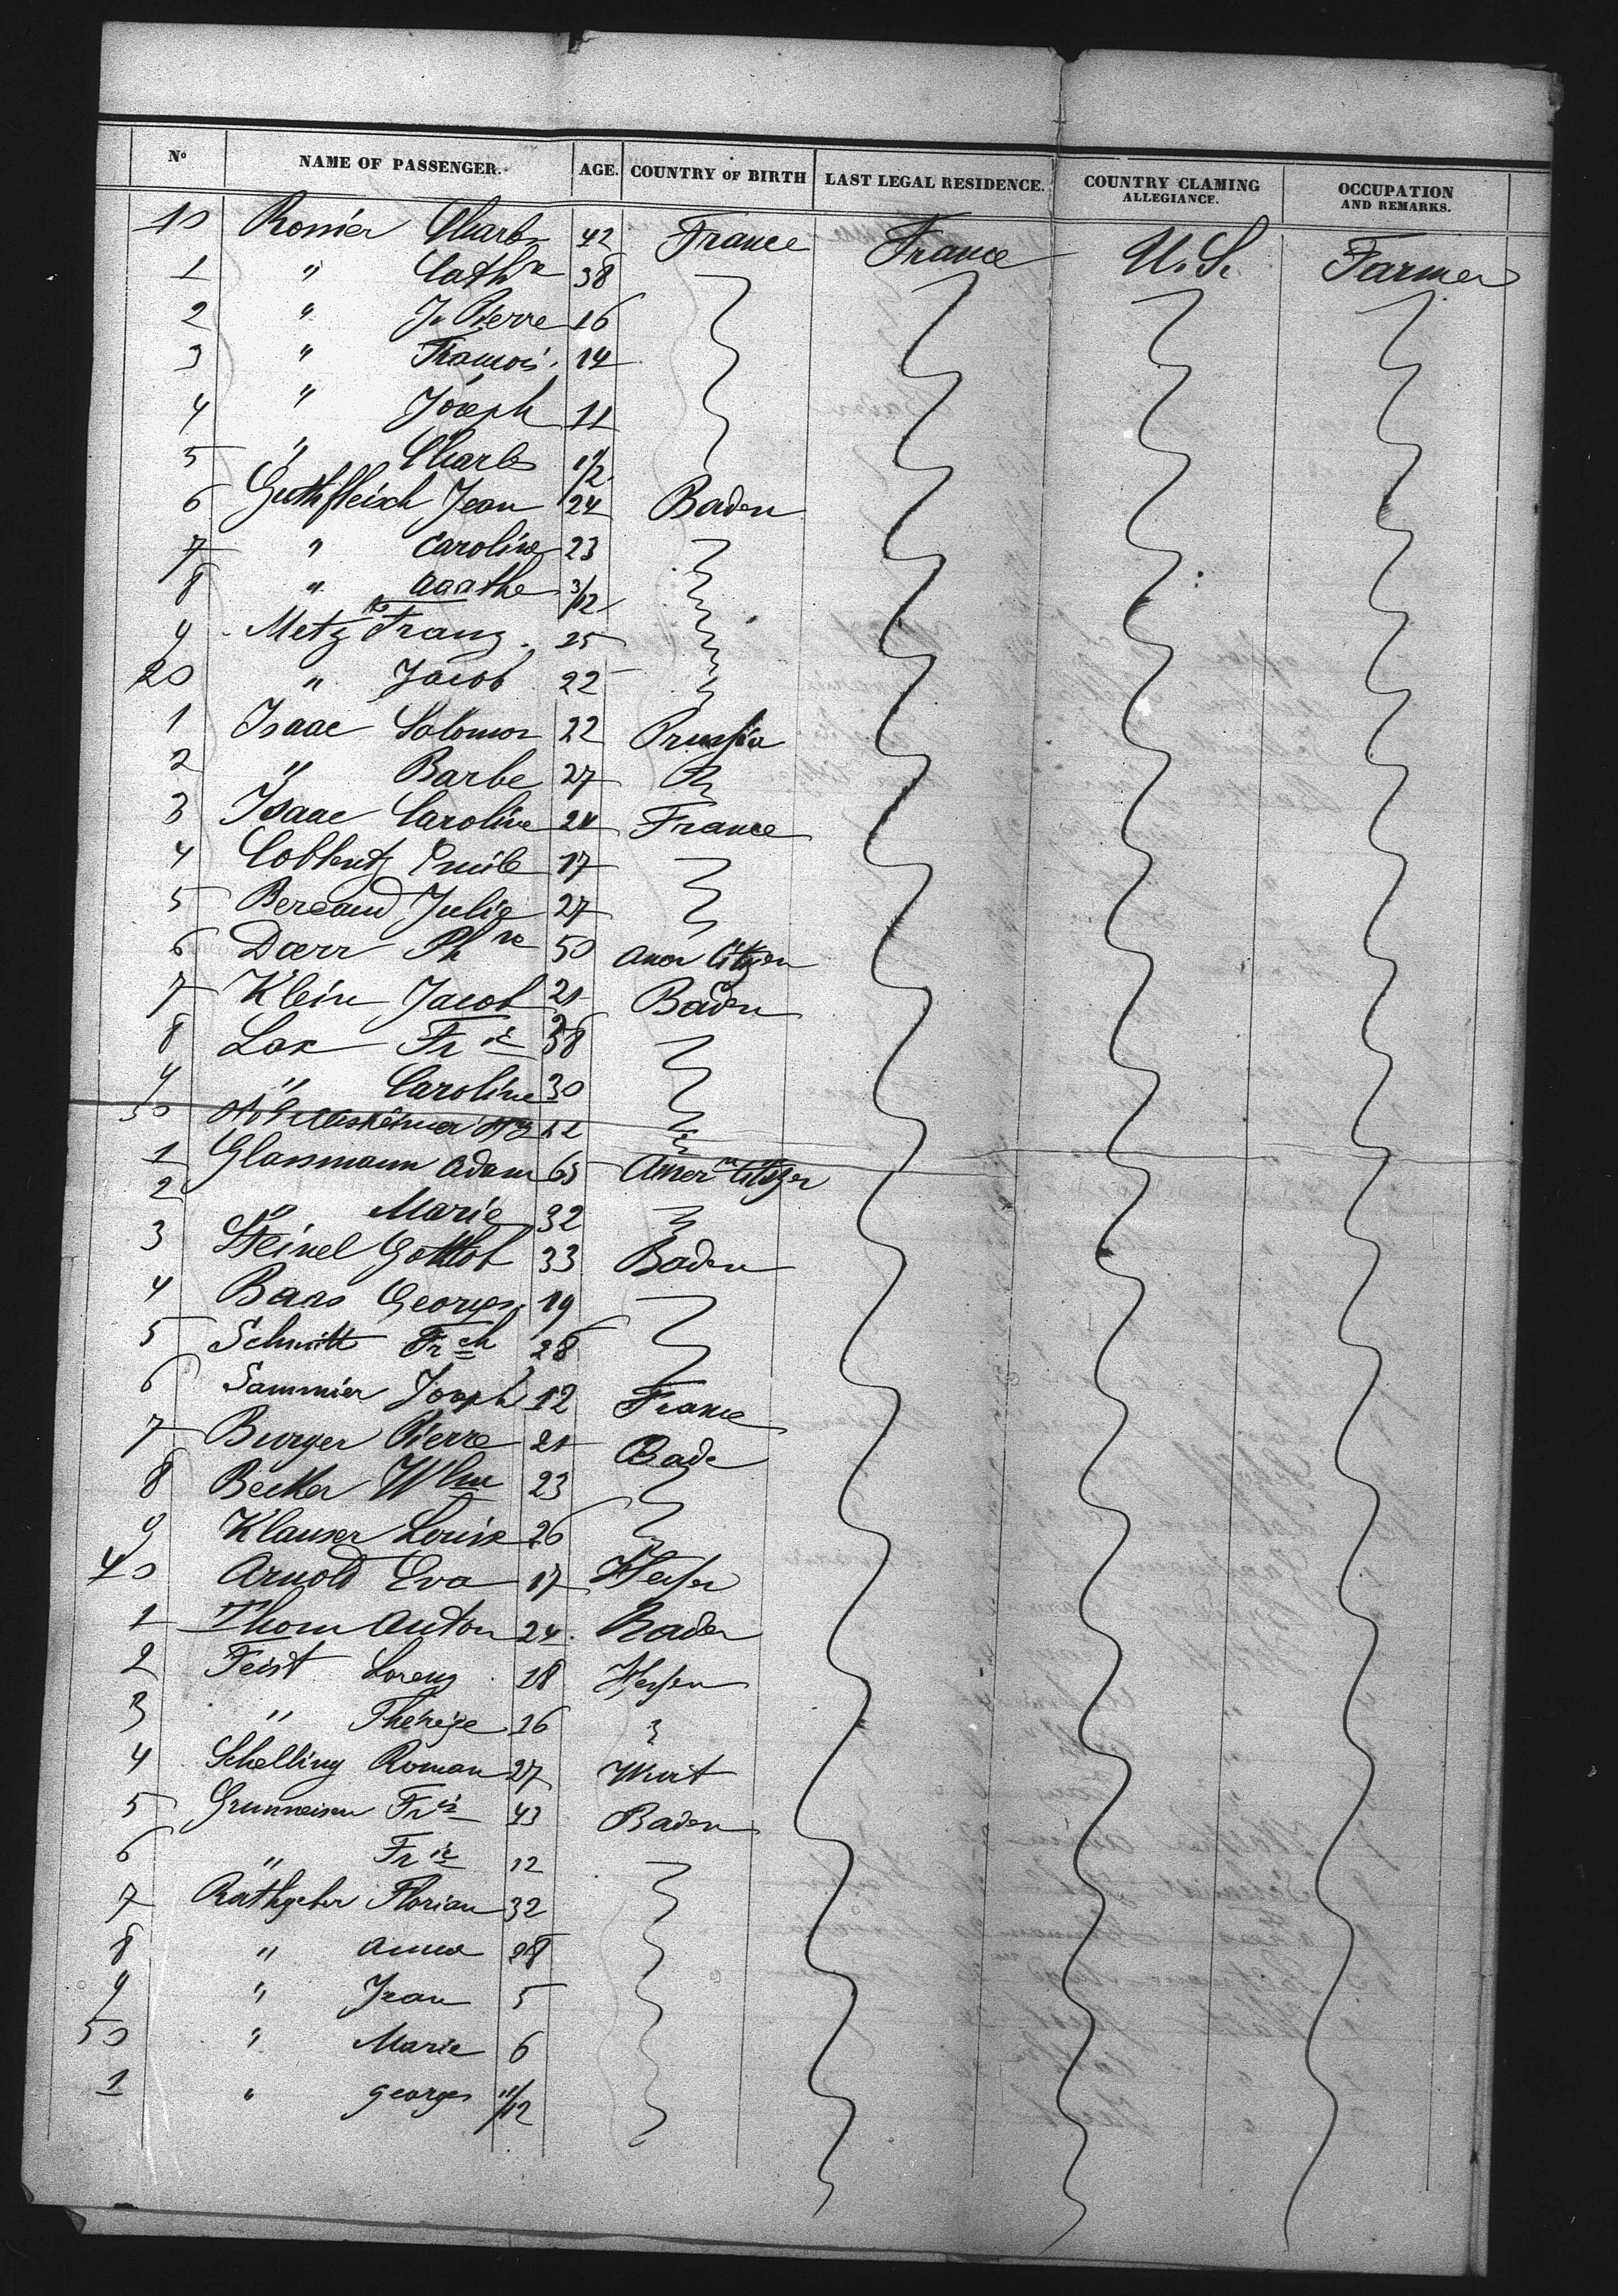 No NAME OF PASSENGER. AGE. COUNTRY OF BIRTH LAST LEGAL RESIDENCE. COUNTRY CLAMING ALLEGIANCE. OCCUPATION AND REMARKS.
10 Romer Charles 42 France France U.S. Farmer
1 " Cathne 38
2 " J. Pierre 16
3 " Francois 14
4 " Joseph 11
5 " Charles 1 1/2
6 Guthfleisch Jean 24 Baden
7 " Caroline 23
8 " Agathe 3/12
9 Metz Franz 25
20 " Jacob 22
1 Isaac Salomon 22 Prussia
2 " Barbe 27
3 Isaac Caroline 24 France
4 Coblentz Emile 17
5 Julie 27
6 Dærr Phne 50 Amer Citizen
7 Klein Jacob 21 Baden
8 Lox Fric 38
9 " Caroline 30
30 22
1 Glassmann Adam 65 Amern Citizen
2 " Marie 32
3 Steinel Gottlob 33 Baden
4 Baas Georges 19
5 Schmitt Frch 28
6 Sammier Joseph 12 France
7 Burger Pierre 21 Bade
8 Becker Wlm 23
9 Klauser Louise 26
40 Arnold Eva 17 Hessen
1 Thom Anton 24 Baden
2 Feist Lorenz 18 Hessen
3 " Thérèse 16 "
4 Schelling Roman 27 Wurt
5 Grunneisen Fric 43 Baden
6 " Fric 12
7 Rathgeber Florian 32
8 " Anna 28
9 " Jean 5
50 " Marie 6
1 " Georges 11/12